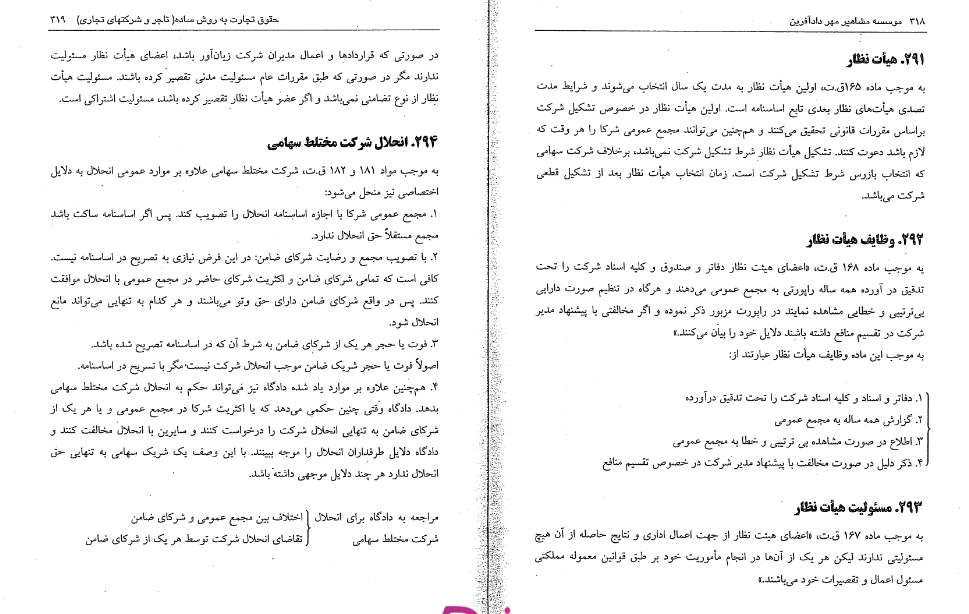 ۳۱۸ موسسه مشاهیر مهر دادآفرین
۲۹۱. هیأت نظار
به موجب ماده ۱۶۵ق.ت، اولین هیأت نظار به مدت یک سال انتخاب می‌شوند و شرایط مدت
تصدی هیأت‌های نظار بعدی تابع اساسنامه است. اولین هیأت نظار در خصوص تشکیل شرکت
براساس مقررات قانونی تحقیق می‌کنند و همچنین می‌توانند مجمع عمومی شرکا را هر وقت که
لازم باشد دعوت کنند. تشکیل هیأت نظار شرط تشکیل شرکت نمی‌باشد، برخلاف شرکت سهامی
که انتخاب بازرس شرط تشکیل شرکت است. زمان انتخاب هیأت نظار بعد از تشکیل قطعی
شرکت می‌باشد.
۲۹۲. وظایف هیأت نظار
به موجب ماده ۱۶۸ ق.ت، «اعضای هیئت نظار دفاتر و صندوق و کلیه اسناد شرکت را تحت
تدقیق در آورده همه ساله راپورتی به مجمع عمومی می‌دهند و هرگاه در تنظیم صورت دارایی
بی‌ترتیبی و خطایی مشاهده نمایند در راپورت مزبور ذکر نموده و اگر مخالفتی با پیشنهاد مدیر
شرکت در تقسیم منافع داشته باشند دلایل خود را بیان می‌کنند.»
به موجب این ماده وظایف هیأت نظار عبارتند از:
۱. دفاتر و اسناد و کلیه اسناد شرکت را تحت تدقیق درآورده
۲. گزارش همه ساله به مجمع عمومی
۳. اطلاع در صورت مشاهده بی ترتیبی و خطا به مجمع عمومی
۴. ذکر دلیل در صورت مخالفت با پیشنهاد مدیر شرکت در خصوص تقسیم منافع
۲۹۳. مسئولیت هیأت نظار
به موجب ماده ۱۶۷ ق.ت، «اعضای هیئت نظار از جهت اعمال اداری و نتایج حاصله از آن هیچ
مسئولیتی ندارند لیکن هر یک از آن‌ها در انجام مأموریت خود بر طبق قوانین معموله مملکتی
مسئول اعمال و تقصیرات خود می‌باشند.»
حقوق تجارت به روش ساده( تاجر و شرکتهای تجاری) ۳۱۹
در صورتی که قراردادها و اعمال مدیران شرکت زیان‌آور باشد، اعضای هیأت نظار مسئولیت
ندارند مگر در صورتی که طبق مقررات عام مسئولیت مدنی تقصیر کرده باشند. مسئولیت هیأت
نظار از نوع تضامنی نمی‌باشد و اگر عضو هیأت نظار تقصیر کرده باشد، مسئولیت اشتراکی است.
۲۹۴. انحلال شرکت مختلط سهامی
به موجب مواد ۱۸۱ و ۱۸۲ ق.ت، شرکت مختلط سهامی علاوه بر موارد عمومی انحلال به دلایل
اختصاصی نیز منحل می‌شود:
۱. مجمع عمومی شرکا با اجازه اساسنامه انحلال را تصویب کند. پس اگر اساسنامه ساکت باشد
مجمع مستقلاً حق انحلال ندارد.
۲. با تصویب مجمع و رضایت شرکای ضامن: در این فرض نیازی به تصریح در اساسنامه نیست.
کافی است که تمامی شرکای ضامن و اکثریت شرکای حاضر در مجمع عمومی با انحلال موافقت
کنند. پس در واقع شرکای ضامن دارای حق وتو می‌باشند و هر کدام به تنهایی می‌تواند مانع
انحلال شود.
۳. فوت یا حجر هر یک از شرکای ضامن به شرط آن که در اساسنامه تصریح شده باشد.
اصولاً فوت یا حجر شریک ضامن موجب انحلال شرکت نیست، مگر با تسریح در اساسنامه.
۴. هم‌چنین علاوه بر موارد یاد شده دادگاه نیز می‌تواند حکم به انحلال شرکت مختلط سهامی
بدهد. دادگاه وقتی چنین حکمی می‌دهد که یا اکثریت شرکا در مجمع عمومی و یا هر یک از
شرکای ضامن به تنهایی انحلال شرکت را درخواست کنند و سایرین با انحلال مخالفت کنند و
دادگاه دلایل طرفداران انحلال را موجه ببینند. با این وصف یک شریک سهامی به تنهایی حق
انحلال ندارد هر چند دلایل موجهی داشته باشد.
مراجعه به دادگاه برای انحلال اختلاف بین مجمع عمومی و شرکای ضامن
شرکت مختلط سهامی تقاضای انحلال شرکت توسط هر یک از شرکای ضامن